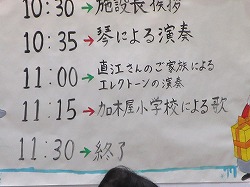 10:30→施設長挨拶
10:35→琴による演奏
11:00→直江さんのご家族による
エレクトーンの演奏
11:15→加木屋小学校による歌
11:30→終了